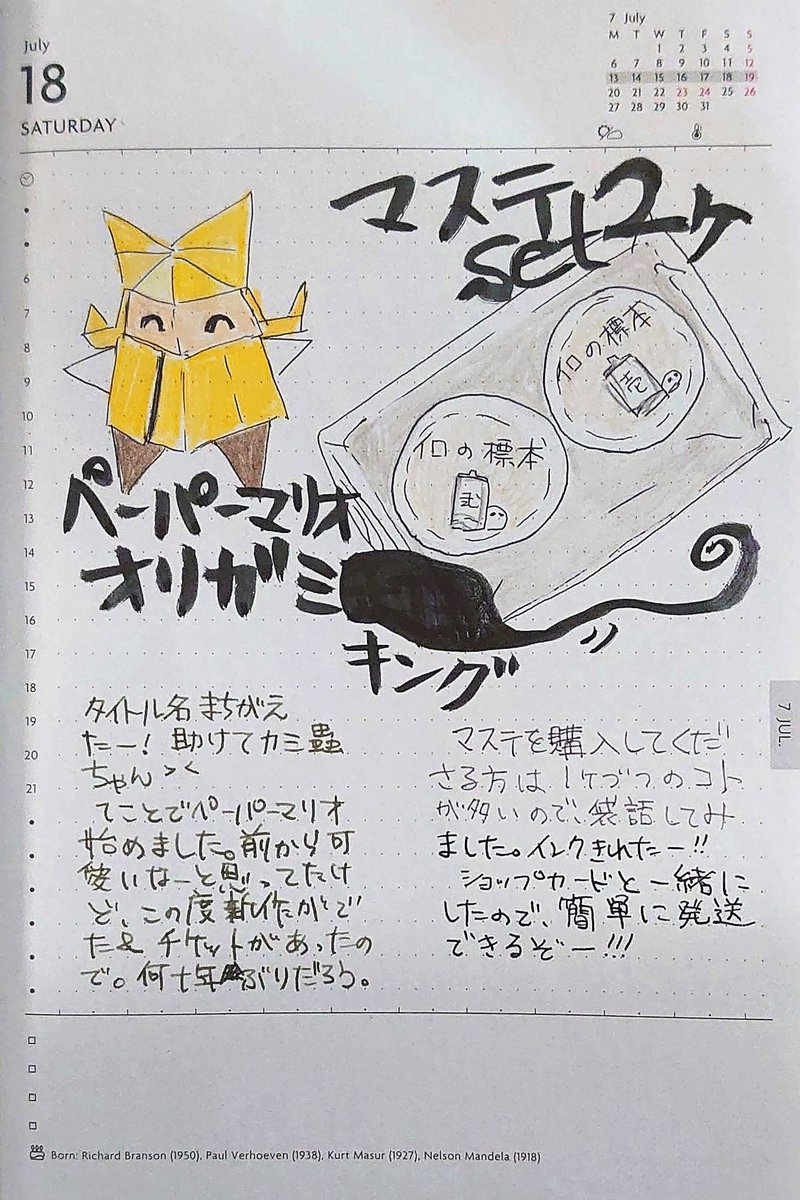 July
18
SATURDAY
7 July
M T W T F S S
1 2 3 4 5
6 7 8 9 10 11 12
13 14 15 16 17 18 19
20 21 22 23 24 25 26
27 28 29 30 31
マステ2ヶ
set
イロの標本
壱
イロの標本
ペーパーマリオ
オリガミ
キング
6
7
8
9
10
11
12
13
14
15
16
17
18
19
20
21
7 JUL.
タイトル名まちがえ
たー!助けてカミ蟲
ちゃん><
てことでペーパーマリオ
始めました。前から可
愛いなーと思ってたけ
ど、この度新作がで
た& チケットがあったの
で。何十年ぶりだろう。
マステを購入してくだ
さる方は1ケづつのコト
が多いので、袋詰してみ
ました。インクきれたー!!
ショップカードと一緒に
したので、簡単に発送
できるぞー!!!
Born: Richard Branson (1950), Paul Verhoeven (1938), Kurt Masur (1927), Nelson Mandela (1918)